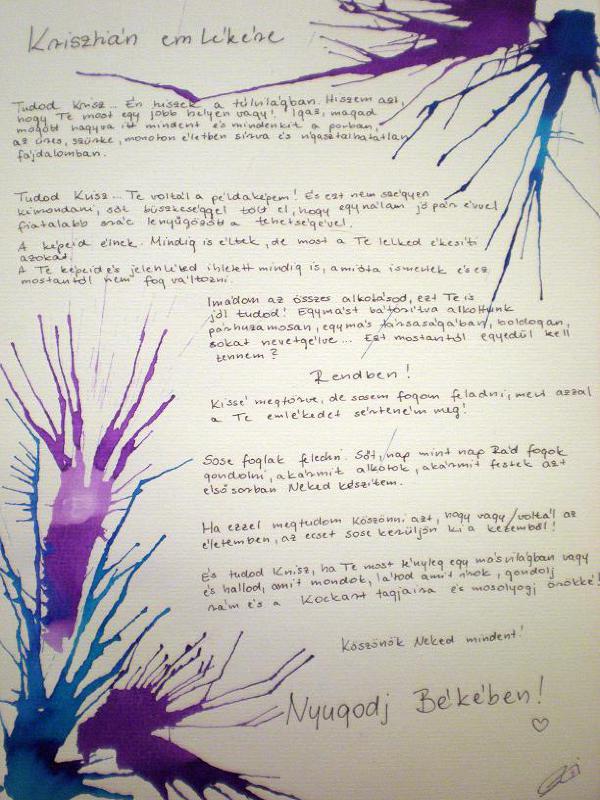 Krisztián emlékére
Tudod Krisz... Én hiszek a túlvilágban. Hiszem azt,
hogy Te most egy jobb helyen vagy! Igaz, magad
mögött hagyva itt mindent és mindenkit a porban,
az üres, szürke, monoton életben sírva és vigasztalhatatlan
fájdalomban.
Tudod Krisz... Te voltál a példaképem! És ezt nem szégyen
kimondani, sőt büszkeséggel tölt el, hogy egy nálam jó pár évvel
fiatalabb srác lenyűgözött a tehetségével.
A képeid élnek. Mindig is éltek, de most a Te lelked ékesíti
azokat.
A Te képeid és jelenléted ihletett mindig is, amióta ismerlek és ez
mostantól nem fog változni.
Imádom az összes alkotásod, ezt Te is
jól tudod! Egymást bátorítva alkottunk
párhuzamosan, egymás társaságában, boldogan,
sokat nevetgélve... Ezt mostantól egyedül kell
tennem?
Rendben!
Kissé megtörve, de sosem fogom feladni, mert azzal
a Te emlékedet sérteném meg!
Sose foglak feledni. Sőt, nap mint nap Rád fogok
gondolni, akármit alkotok, akármit festek azt
elsősorban Neked készítem.
Ha ezzel megtudom köszönni azt, hogy vagy/voltál az
életemben, az ecset sose kerüljön ki a kezemből!
És tudod Krisz, ha Te most tényleg egy másvilágban vagy
és hallod, amit mondok, látod amit írok, gondolj
rám és a Kockart tagjaira és mosolyogj örökké!
Köszönök Neked mindent!
Nyugodj Békében!